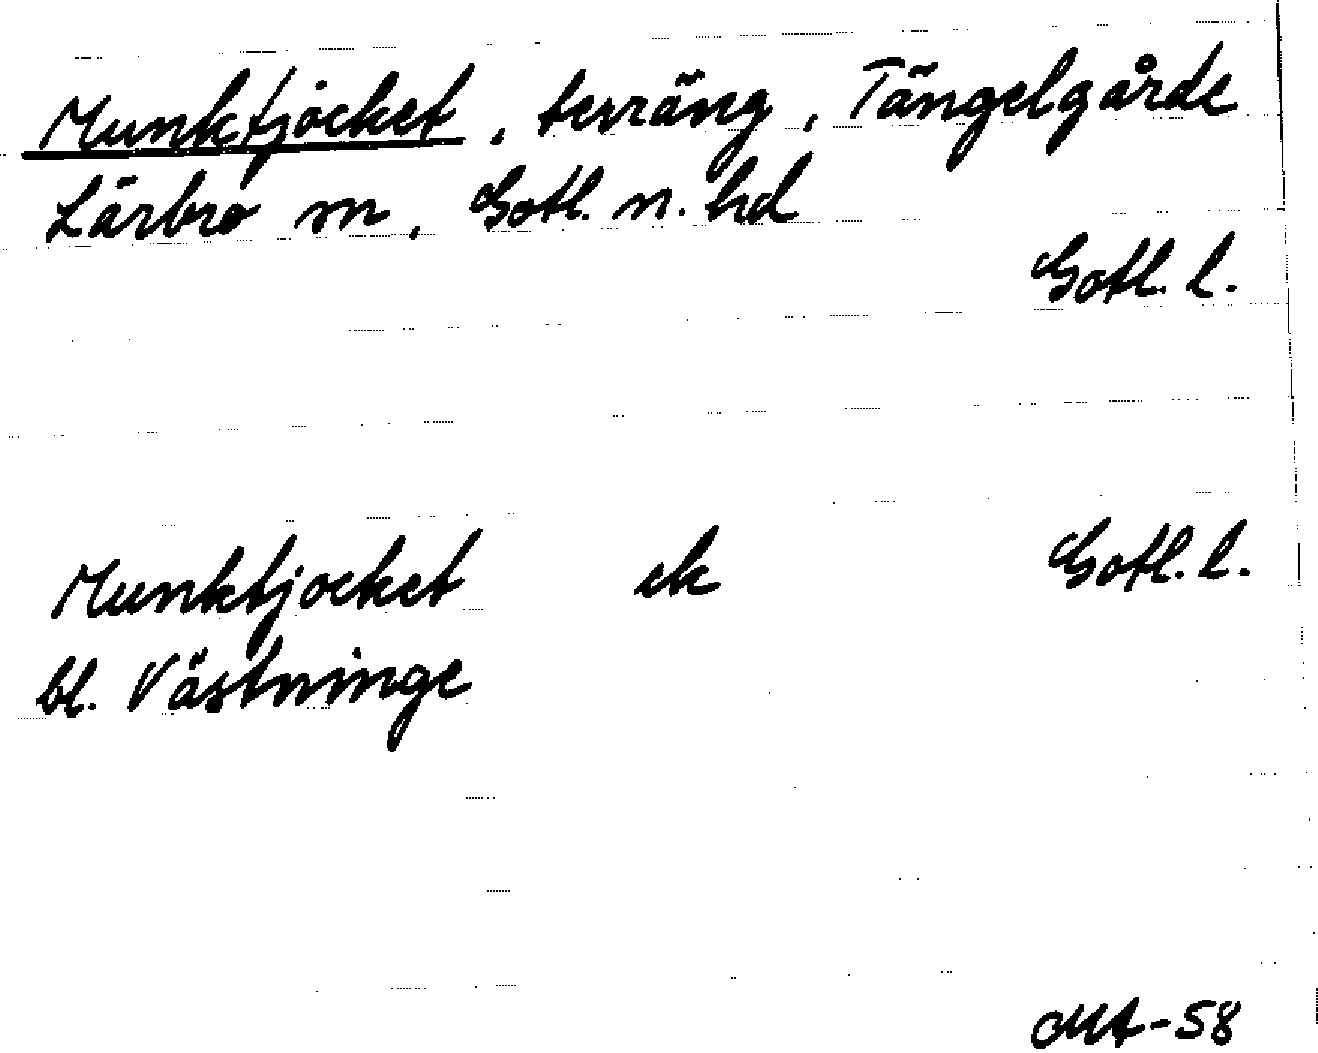 Munktjocket, terräng, Tängelgårde
Lärbro sn, Gotl. n. hd
Gotl. l.
Munktjocket ek Gotl. l.
bl. Västninge